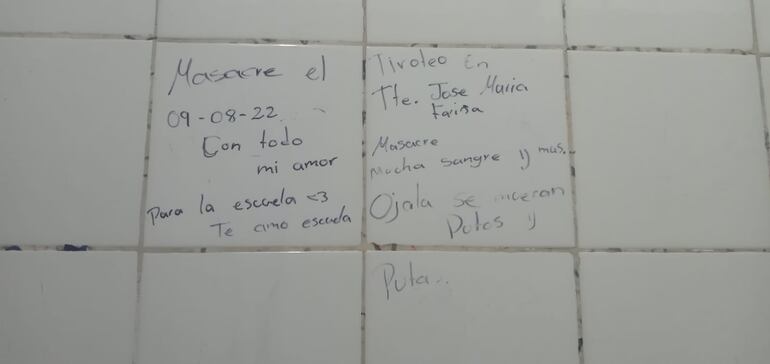 Masacre el
09-08-22
Con todo
mi amor
Para la escuela <3
Te amo escuela
Tiroteo En
Tte. Jose Maria
Fariña
Masacre
Mucha sangre y mas..
Ojala se mueran
Putos y
Puta..